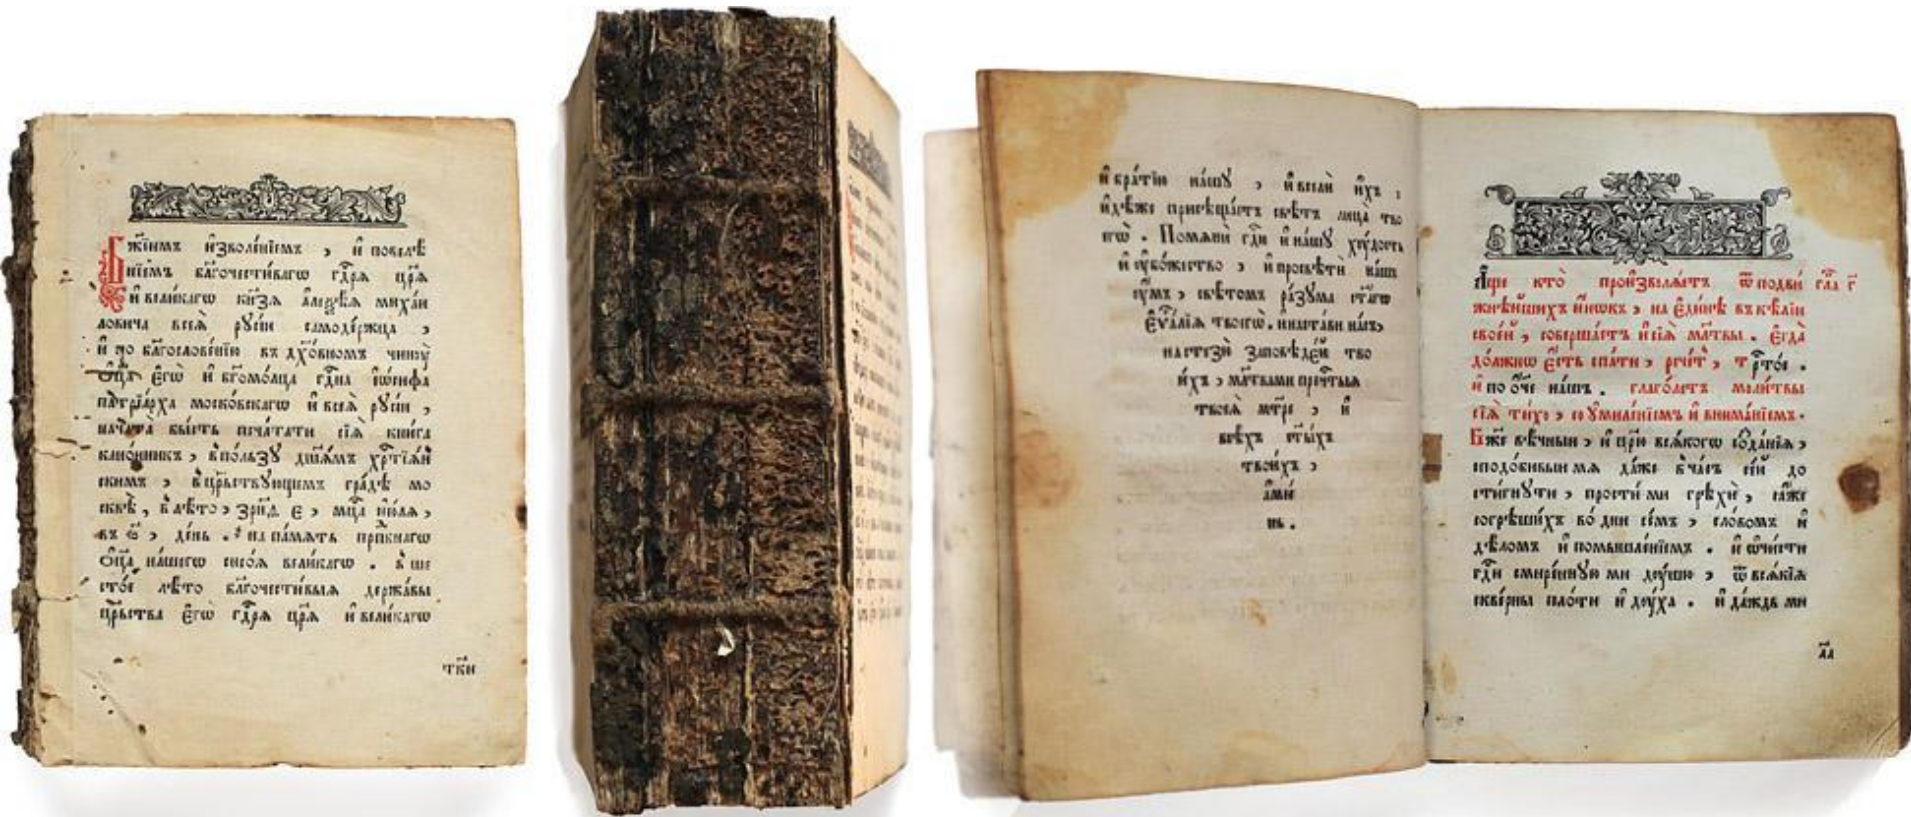 Бж҃іимъ и҆зволе́нїемъ , и҆ повелѣ
нїемъ бл҃гочести́вагѡ гд҇рѧ цр҃ѧ
и҆ вели́кагѡ кн҃зѧ а҆леѯѣ́ѧ миха́и
ловича всеѧ̀ рꙋсі́и самоде́ржца ,
и҆ по бл҃гослове́нїю въ дх҃о́вномъ чинꙋ̀
ѻ҆ц҃а̀ є҆гѡ̀ и҆ бг҃омо́лца гд҇и́на і҆ѡ́сифа
патрїа́рха моско́вскагѡ и҆ всеѧ̀ рꙋсі́и ,
нача́та бы́сть печа́тати сїѧ̀ кни́га
кано́нникъ , в̾по́льзꙋ дш҃а́мъ хрⷭ҇тїѧ́н
скимъ , в̾црⷭ҇твꙋющемъ гра́дѣ мо
сквѣ̀ , в̾лѣ́то ,
въ день . на па́мѧть прпⷣбнагѡ
ѻ҆ц҃а̀ на́шегѡ сисо́ѧ вели́кагѡ . в̾ше
сто́е лѣ́то бл҃гочести́выѧ держа́вы
црⷭ҇тва є҆гѡ̀ гд҇рѧ цр҃ѧ и҆ вели́кагѡ
тк҃и
и҆ бра́тїю на́шꙋ , и҆ вселѝ и҆́хъ ,
и҆дѣ́же присѣща́етъ свѣ́тъ лица̀ тво
егѡ̀ . Помѧнѝ гдⷭ҇и и҆ на́шꙋ хꙋ́дость
и҆ ᲂу҆бо́жество , и҆ просвѣтѝ на́шъ
ᲂу҆́мъ , свѣ́томъ ра́зꙋма ст҃а́гѡ
є҆ѵⷢ҇а́лїѧ твоегѡ̀ . и҆ наста́ви на́съ ,
на стезѝ за́повѣде́й тво
и́хъ , мл҃твами пречⷭ҇тыѧ
твоеѧ̀ мт҃ре , и҆
всѣ́хъ ст҃ы́хъ
твои́хъ ,
а҆ми́
нь .
А҆́ще кто̀ произволѧ́етъ ѿ подви гла г҃
жнѣ́йшихъ и҆́нокъ , на є҆ди́нѣ въ ке́лїи
свое́й , соверша́етъ и҆ сїѧ̀ мл҃твы . є҆гда̀
до́лжно є҆́сть спа́ти , рече́тъ , трⷭ҇то́е .
и҆ по ѻ҆́ч҃е на́шъ . глаго́летъ моли́твы
сїѧ̀ ти́хо , со ᲂу҆миле́нїемъ и҆ внима́нїемъ .
Бж҃е вѣ́чныи , и҆ цр҃ю всѧ́когѡ созда́нїѧ ,
сподо́бивыи мѧ да́же в̾ча́съ се́й до
сти́гнꙋти , прости́ ми грѣхѝ , ꙗ҆́же
согрѣши́хъ во́ дни се́мъ , сло́вомъ и҆
дѣ́ломъ и҆ помышле́нїемъ . и҆ ѡ҆чи́сти
гдⷭ҇и смире́ннꙋю ми дꙋ́шꙋ , ѿ всѧ́кїѧ
скве́рны пло́ти и҆ дꙋ́ха . и҆ да́ждь ми
а҃л